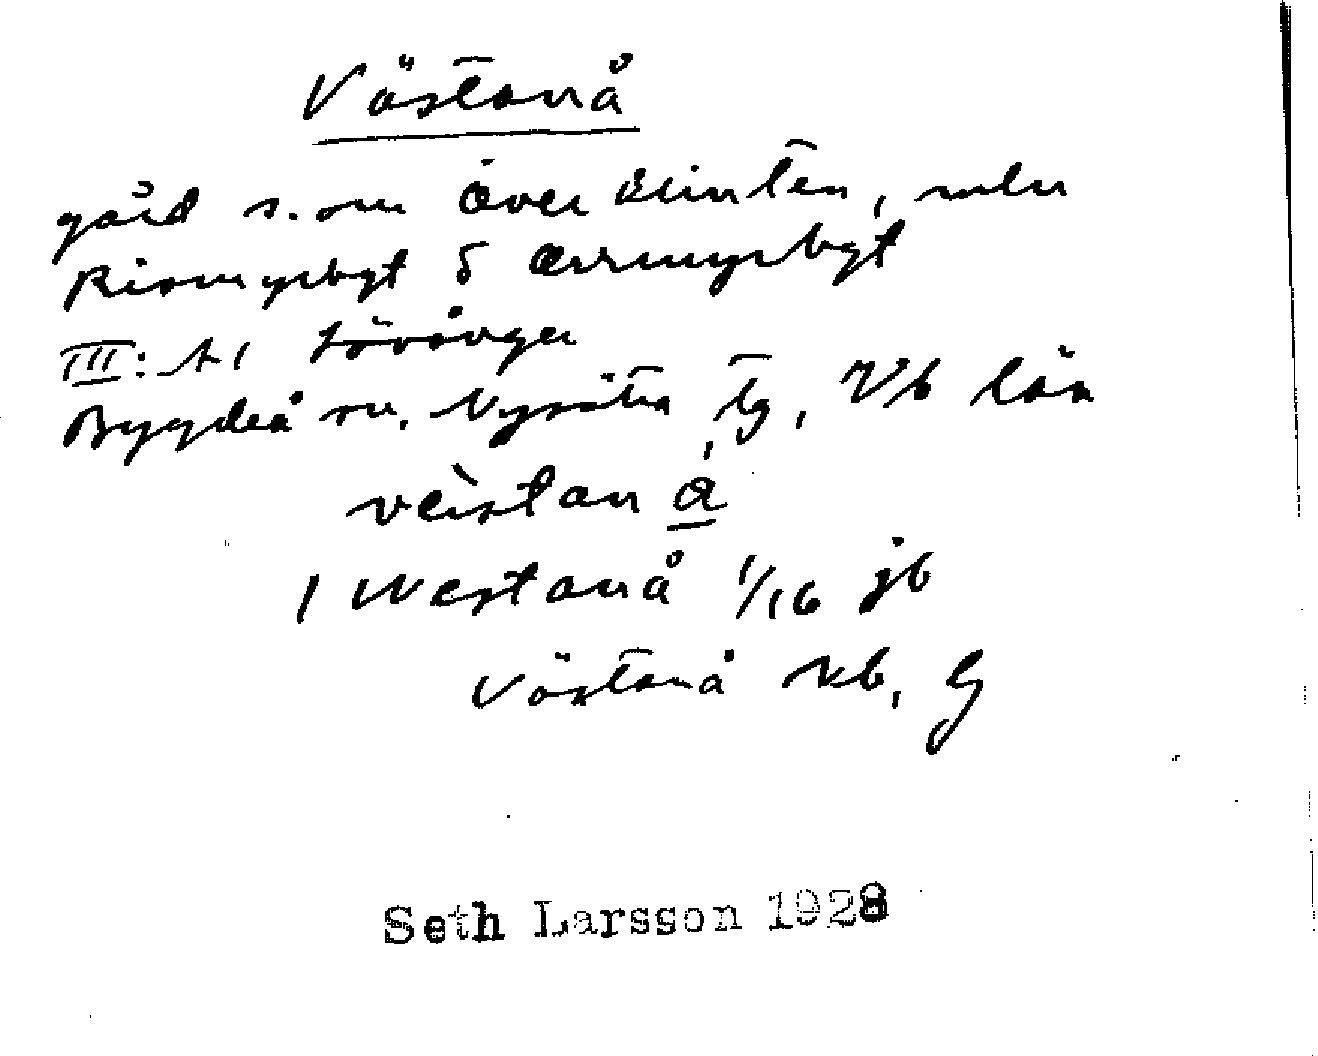 Västanå
gård s. om Överklinten, mlm
Rismyrbyt o Orrmyrbyt
III: A1 Lövånger
Bygdeå sn. Nysätra tg, Vb län
västan å
1 Westanå 1/16 jb
Västanå kb, G
Seth Larsson 1928